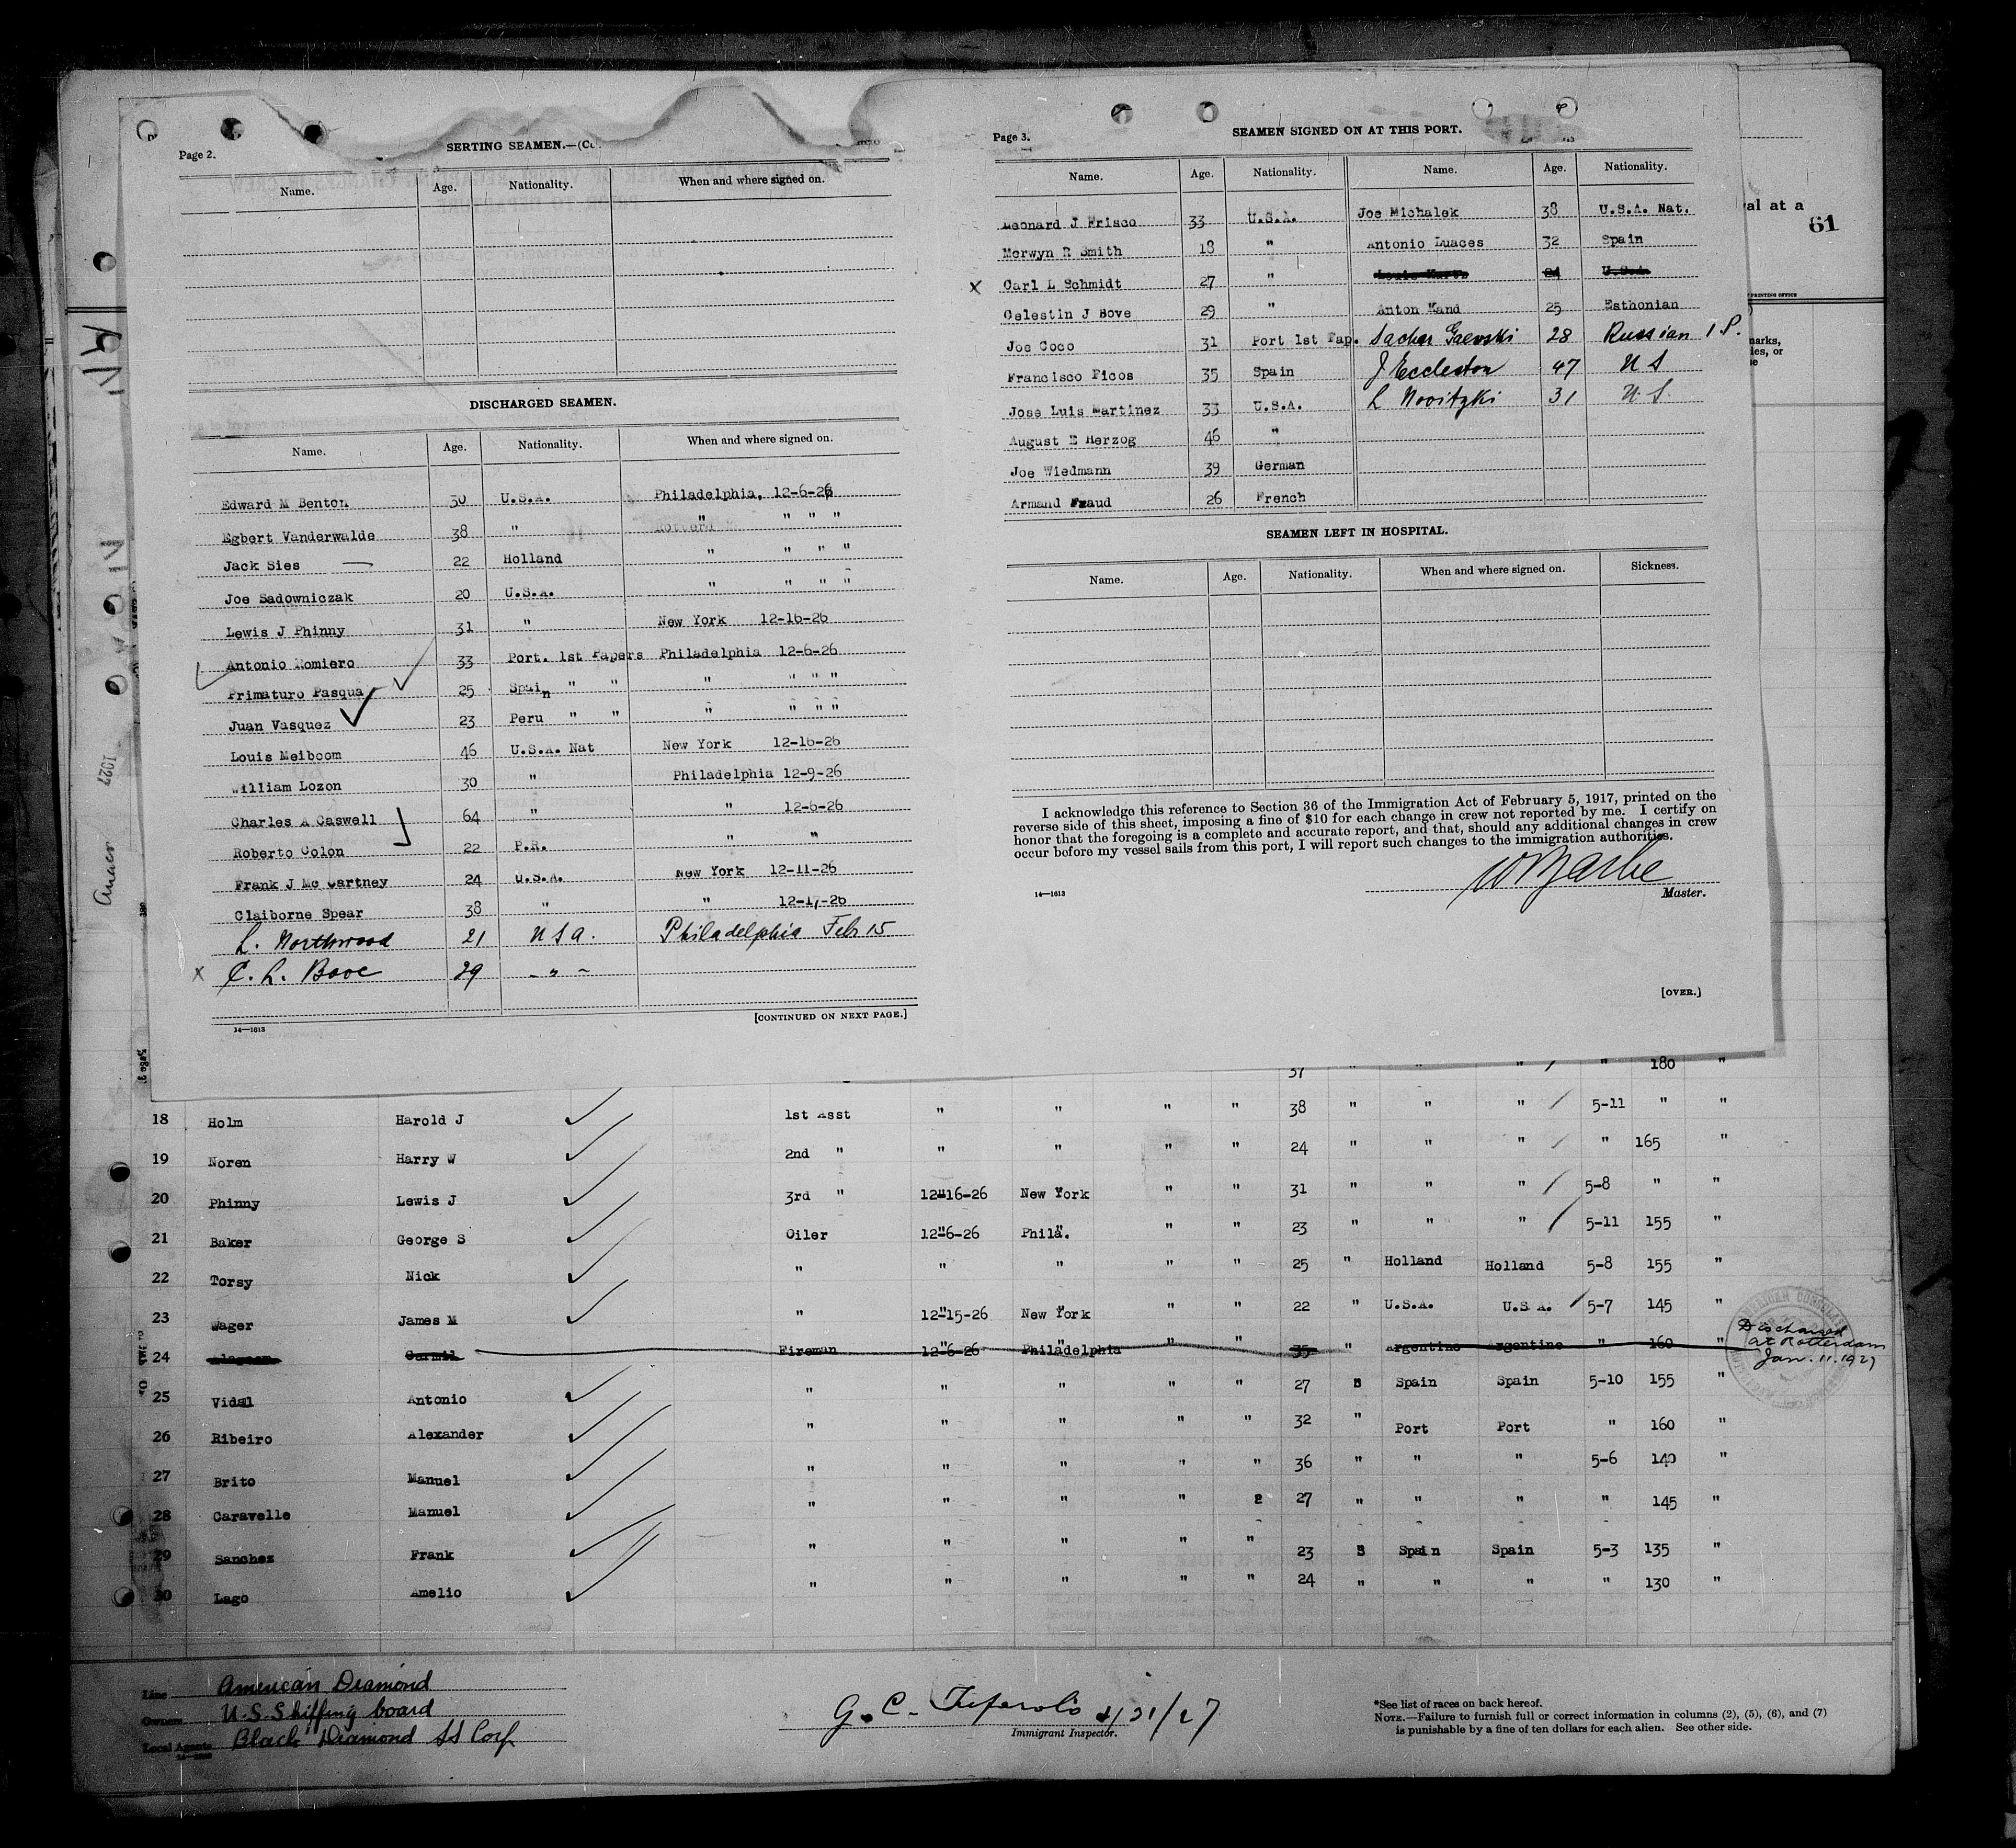 Page 2.
SERTING SEAMEN.—(Co
Name. Age. Nationality. When and where signed on.
DISCHARGED SEAMEN.
Name. Age. Nationality. When and where signed on.
Edward M Benton 30 U.S.A. Philadelphia, 12-6-26
Egbert Vanderwalde 38 " " " " "
Jack Sies 22 Holland " " " "
Joe Sadowniczak 20 U.S.A. " " " "
Lewis J Phinny 31 " New York 12-16-26
Antonio Romiero 33 Port. 1st Papers Philadelphia 12-6-26
Primaturo Pasqua 25 Spain " " " " " "
Juan Vasquez 23 Peru " " " " " "
Louis Meiboom 46 U.S.A. Nat New York 12-16-26
William Lozon 30 " Philadelphia 12-9-26
Charles A Caswell 64 " " 12-6-26
Roberto Colon 22 P.R. " "
Frank J Mc Cartney 24 U.S.A. New York 12-11-26
Claiborne Spear 38 " " 12-17-26
L. Northwood 21 U S A. Philadelphia Feb 15
x C. L. Bove 29 - " -
14—1613
[CONTINUED ON NEXT PAGE.]
Page 3.
SEAMEN SIGNED ON AT THIS PORT.
Name. Age. Nationality. Name. Age. Nationality.
Leonard J Frisco 33 U.S.A. Joe Michalek 38 U.S.A. Nat.
Merwyn R Smith 18 " Antonio Luaces 32 Spain
x Carl L Schmidt 27 " 24 U.S.A.
Celestin J Bove 29 " Anton Kand 25 Esthonian
Joe Coco 31 Port 1st Pap. Sachar Gaevski 28 Russian 1 P.
Francisco Ficos 35 Spain J Eccleston 47 U S
Jose Luis Martinez 33 U.S.A. L Novitzki 31 U.S.
August E Herzog 46 "
Joe Wiedmann 39 German
Armand Fraud 26 French
SEAMEN LEFT IN HOSPITAL.
Name. Age. Nationality. When and where signed on. Sickness.
I acknowledge this reference to Section 36 of the Immigration Act of February 5, 1917, printed on the
reverse side of this sheet, imposing a fine of $10 for each change in crew not reported by me. I certify on
honor that the foregoing is a complete and accurate report, and that, should any additional changes in crew
occur before my vessel sails from this port, I will report such changes to the immigration authorities.
14—1613
Master.
[OVER.]
val at a
61
PRINTING OFFICE
marks,
ies, or
se
1927
37 " " " " 180 "
18 Holm Harold J 1st Asst " " " " 38 " " " 5-11 " "
19 Noren Harry W 2nd " " " " " 24 " " " " 165 "
20 Phinny Lewis J 3rd " 12-16-26 New York " " 31 " " " 5-8 " "
21 Baker George S Oiler 12-6-26 Phila. " " 23 " " " 5-11 155 "
22 Torsy Nick " " " " " 25 " Holland Holland 5-8 155 "
23 Wager James M " 12-15-26 New York " " 22 " U.S.A. U.S.A. 5-7 145 "
24 Fireman 12-6-26 Philadelphia " " 35 " Argentine Argentine " 160 " Discharged
at Rotterdam
Jan. 11. 1927
25 Vidal Antonio " " " " " 27 S Spain Spain 5-10 155 "
26 Ribeiro Alexander " " " " " 32 " Port Port " 160 "
27 Brito Manuel " " " " " 36 " " " 5-6 140 "
28 Caravelle Manuel " " " " 2 27 " " " " 145 "
29 Sanchez Frank " " " " " 23 S Spain Spain 5-3 135 "
30 Lago Amelio " " " " " 24 " " " " 130 "
Line American Diamond
Owners U.S. Shipping board
Local Agents Black Diamond SS Corp
G. C.
/27
Immigrant Inspector.
*See list of races on back hereof.
NOTE.—Failure to furnish full or correct information in columns (2), (5), (6), and (7)
is punishable by a fine of ten dollars for each alien. See other side.